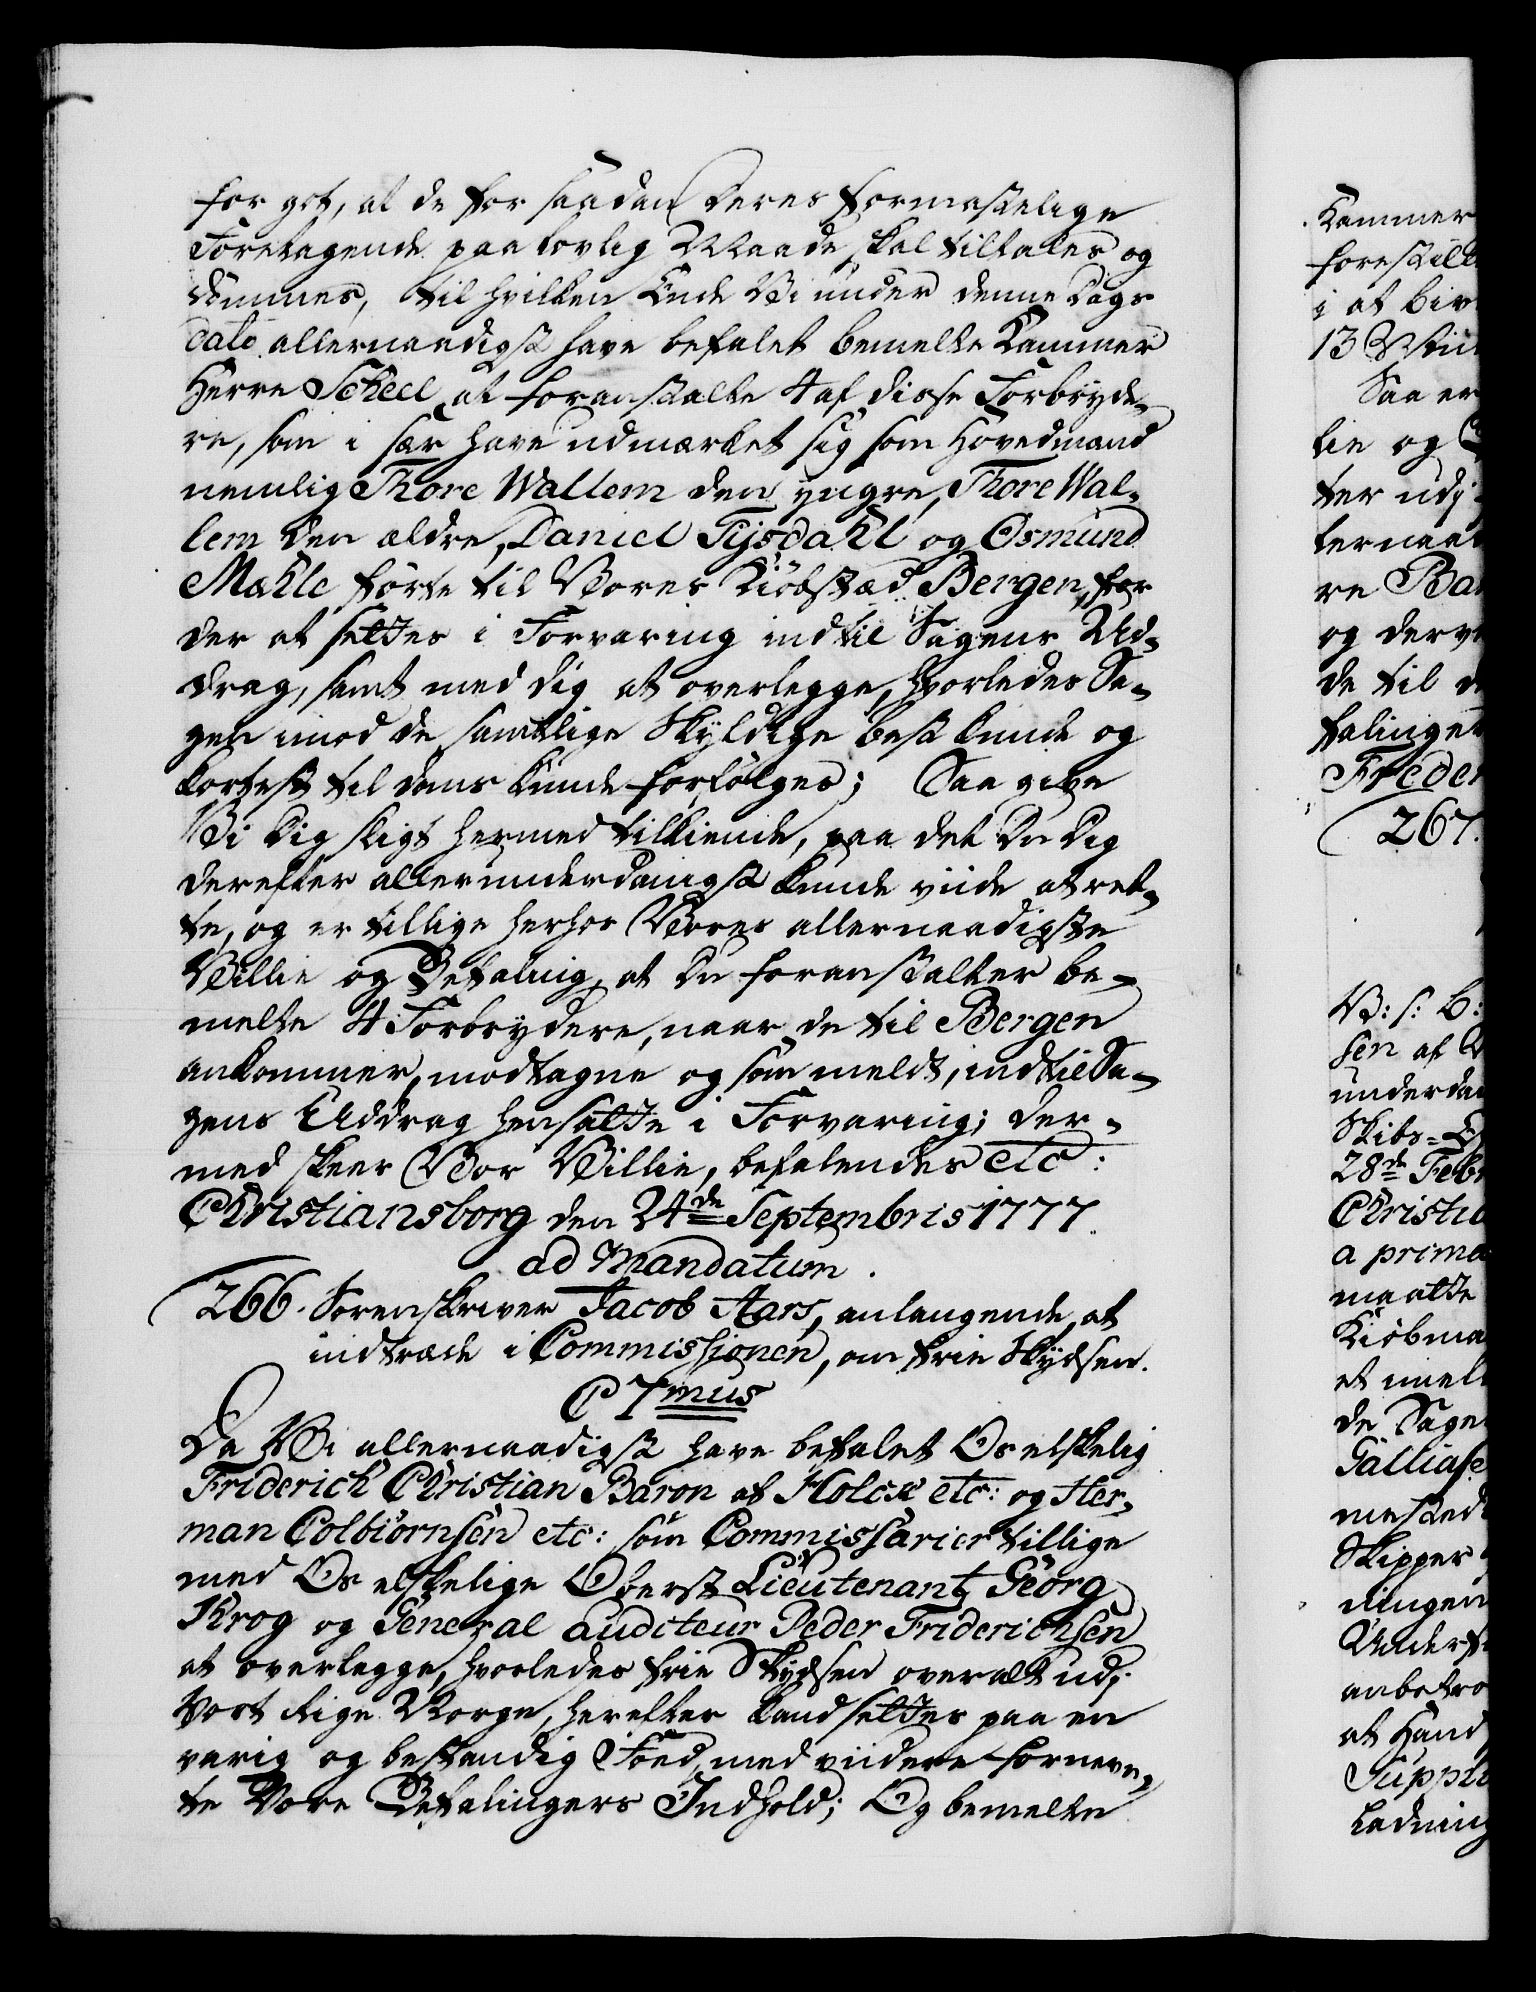 for got, at de for saadan deres formastelige
Foretagende paa lovlig Maade skal tiltales og
dømmes, til hvilken Ende Vi under denne Dags
dato allernaadigst have befalet bemelte Kammer
Herre Scheel at foranstalte 4 af disse Forbryde-
re, som i sær have udmærket sig som Hovedmænd
nemlig Thore Wallem den yngre, Thore Wal-
lem den ældre, Daniel Tysdahl og Osmund
Mahle førte til Vores Kiøbstæd Bergen, for
der at settes i Forvaring indtil Sagens Ud-
drag, samt med dig at overlegge, hvorledes Sa-
gen imod de samtlige Skyldige best kunde og
kortest til doms kunde forfølges; Saa give
Vi Dig sligt hermed tilkiende, paa det Du Dig
derefter allerunderdanigst kunde viide at ret-
te, og er tillige herhos Vores allernaadigste
Villie og Befaling, at Du foranstalter be-
melte 4 Forbrydere, naar de til Bergen
ankommer, modtagne og som meldt, indtil Sa-
gens Uddrag hensatte i Forvaring; der-
med skeer Vor Villie, befalendes etc:
Christiansborg den 24de Septembris 1777.
ad Mandatum.
266. Sorenskriver Jacob Aars, anlangende, at
indtræde i Commissionen, om frie Skydsen.
C 7mus
Da Vi allernaadigst have befalet Os elskelig
Friderich Christian Baron af Holck etc: og Her-
man Colbiørnsen etc: som Commissarier tillige
med Os elskelige Oberst Lieutenant Georg
Krog og General Auditeur Peder Friderichsen
at overlegge, hvorledes frie Skydsen overalt udj
Vort Rige Norge, herefter kand settes paa en
varig og bestandig Foed, med viidere fornevn-
te Vore Befalingers Indhold; Og bemelte
Kammer
forestill
i at biv
13
Saa er
lie og
ter udj
lernaa
re Ba
og derv
de til d
falinger
Freder
267.
V: s: B:
sen af
underda
Skibs-
28de Feb
Christia
a prima
maatte
Kiøbma
et imel
de Sage
Galliase
mested
Skipper
ningen
Underf
anbetro
at Hand
Suppli
Ladning